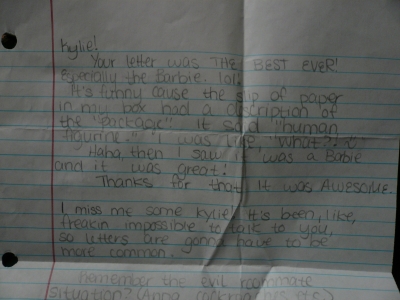 Kylie!
Your letter was THE BEST EVER!
Especially the Barbie. lol.
It's funny cause the slip of paper
in my box had a description of
the "package". It said "human
figurine." I was like, "what?"
Haha, then I saw it was a Barbie
and it was great!
Thanks for that. It was AWESOME.
I miss me some Kylie. It's been, like,
freakin impossible to talk to you,
so letters are gonna have to be
more common.
Remember the evil roommate
situation? (Anna